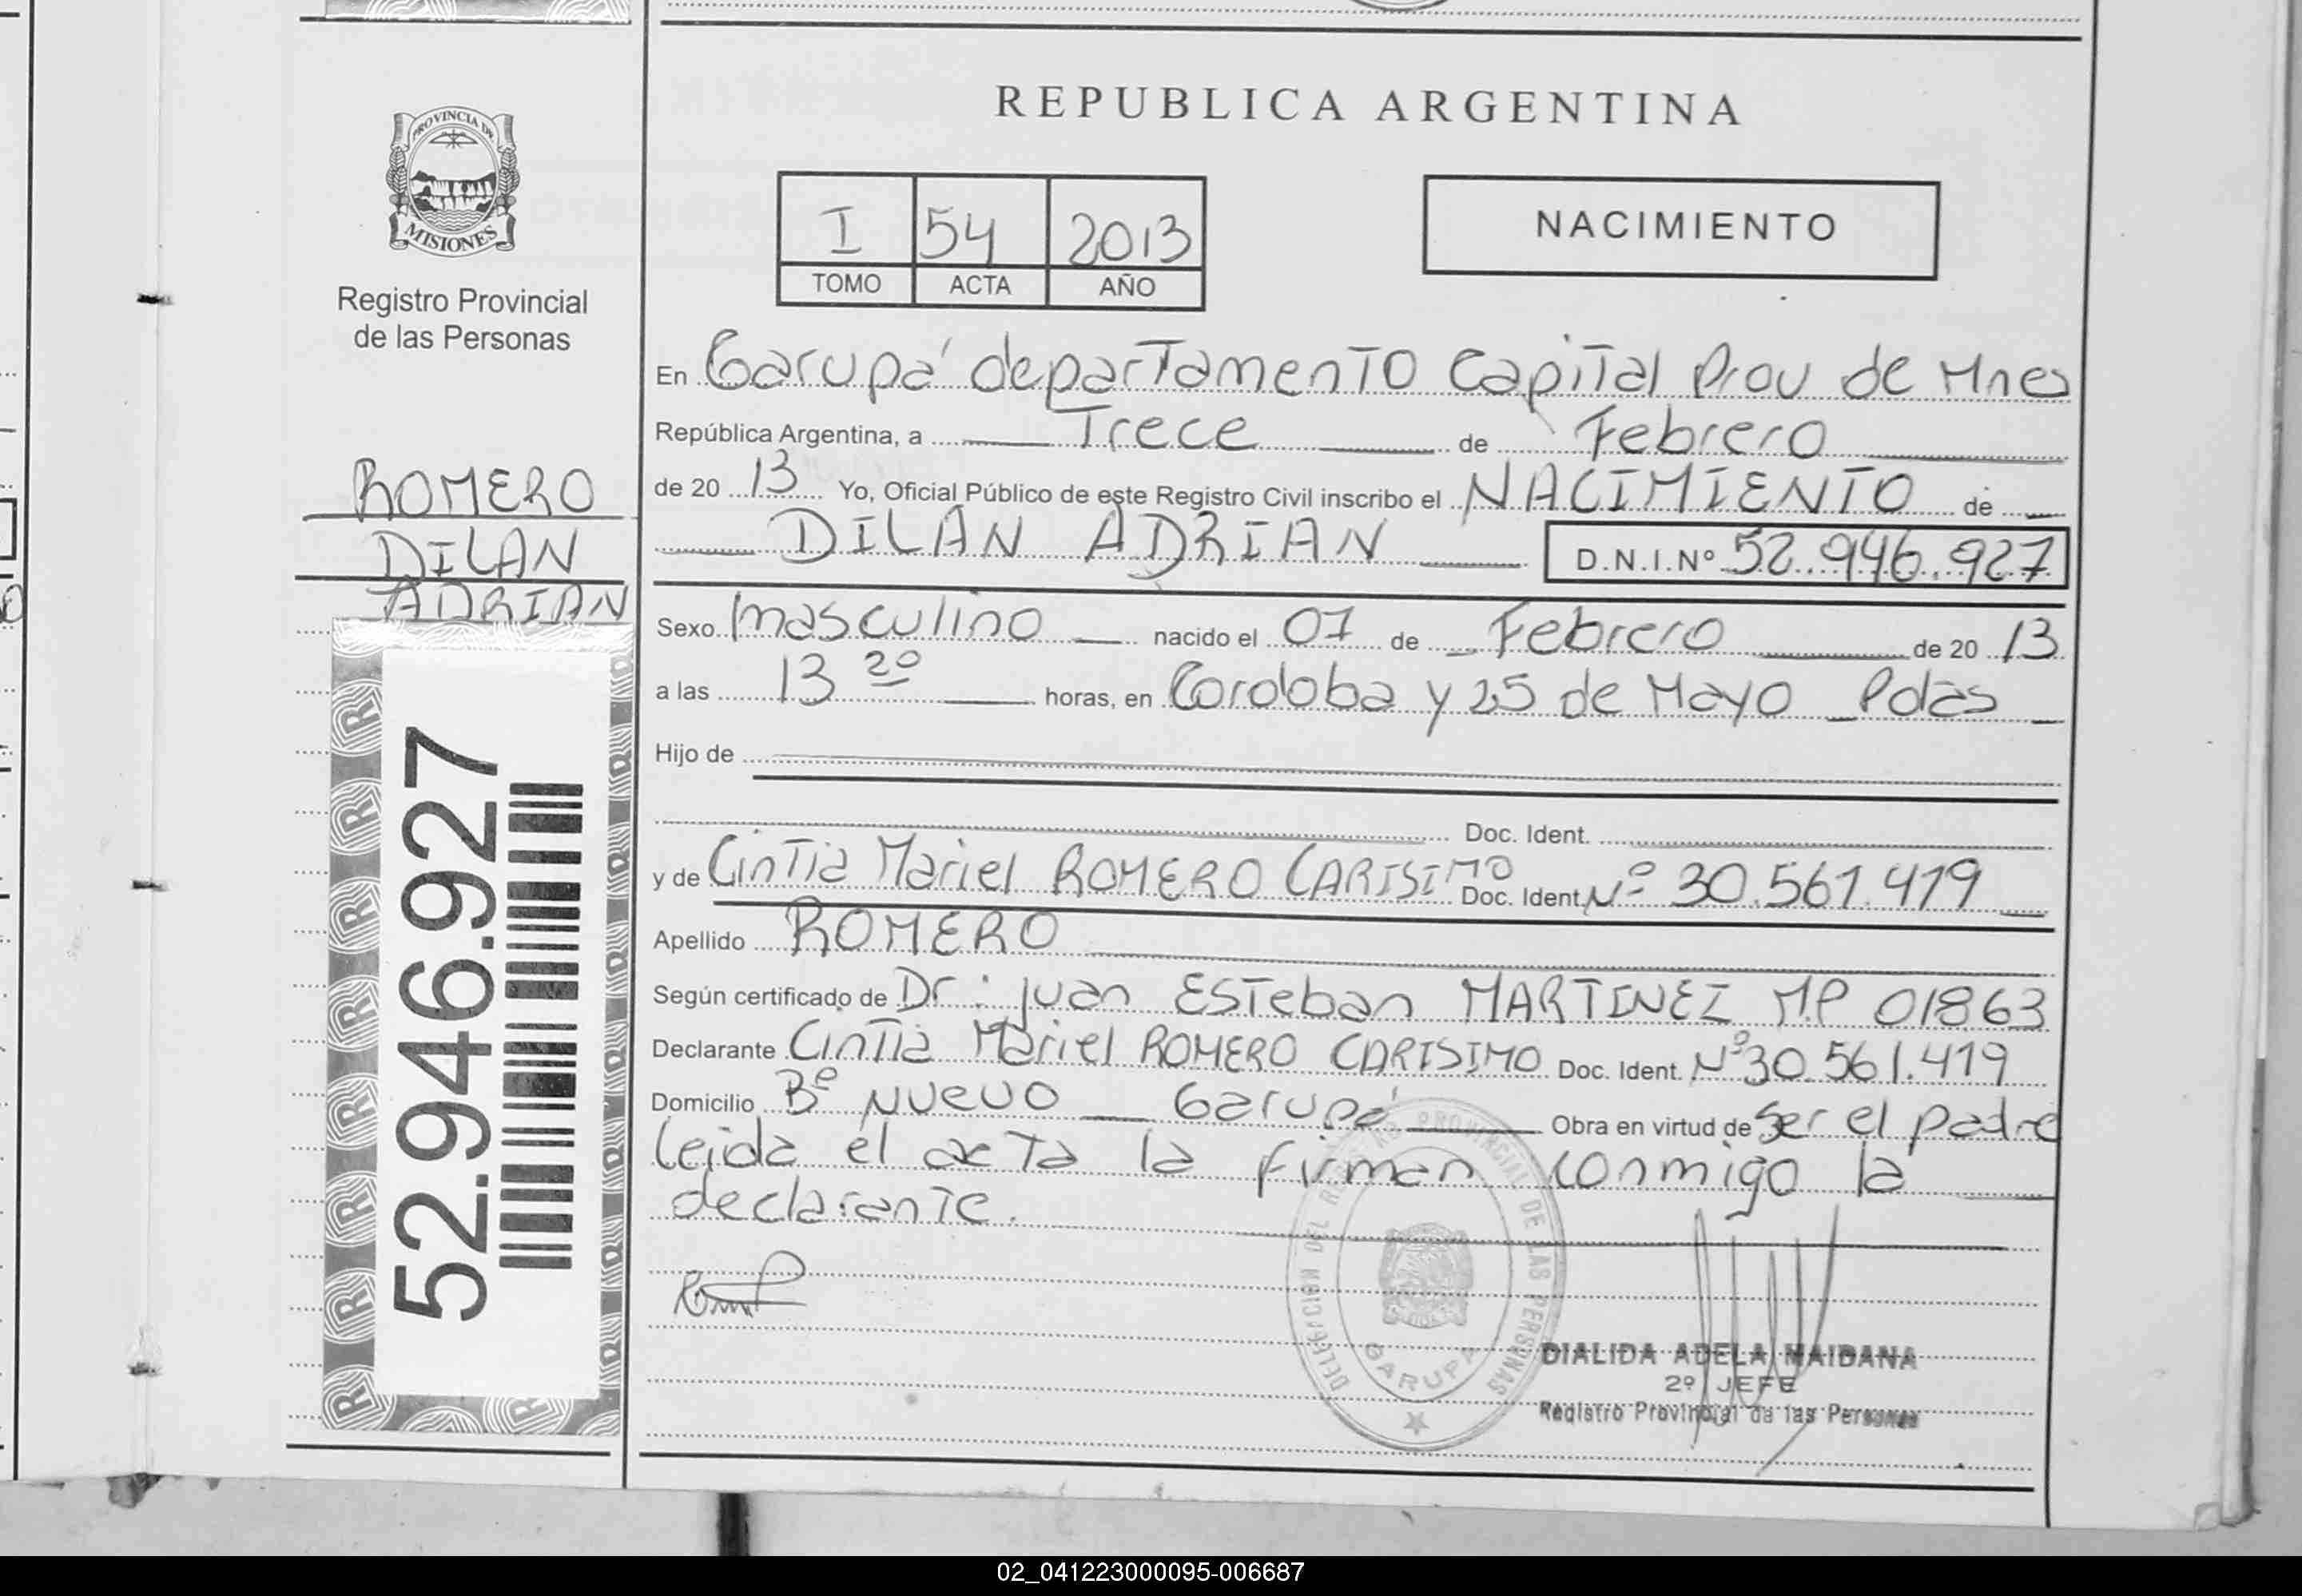 REPUBLICA ARGENTINA
PROVINCIA DE
MISIONES
Registro Provincial
de las Personas
I 54 2013
TOMO ACTA AÑO
NACIMIENTO
En Garupá departamento Capital Prov de Mnes
República Argentina, a Trece de Febrero
de 20 13 Yo, Oficial Público de este Registro Civil inscribo el NACIMIENTO de
DILAN ADRIAN D.N.I.Nº 52.946.927
ROMERO
DILAN
ADRIAN
52.946.927
Sexo masculino nacido el 07 de Febrero de 20 13
a las 13 20 horas, en Cordoba y 25 de Mayo Pdas
Hijo de
Doc. Ident.
y de Cintia Mariel ROMERO CARISIMO Doc. Ident. Nº 30.561.419
Apellido ROMERO
Según certificado de Dr: Juan Esteban MARTINEZ M.P 01863
Declarante Cintia Mariel ROMERO CARISIMO Doc. Ident. Nº 30.561.419
Domicilio Bº Nuevo Garupá Obra en virtud de Ser el padre
leida el acta la firman conmigo la
declarante.
DELEGACION DEL REGISTRO PROVINCIAL DE LAS PERSONAS
GARUPA
DIALIDA ADELA MAIDANA
2º JEFE
Registro Provincial de las Personas
02_041223000095-006687